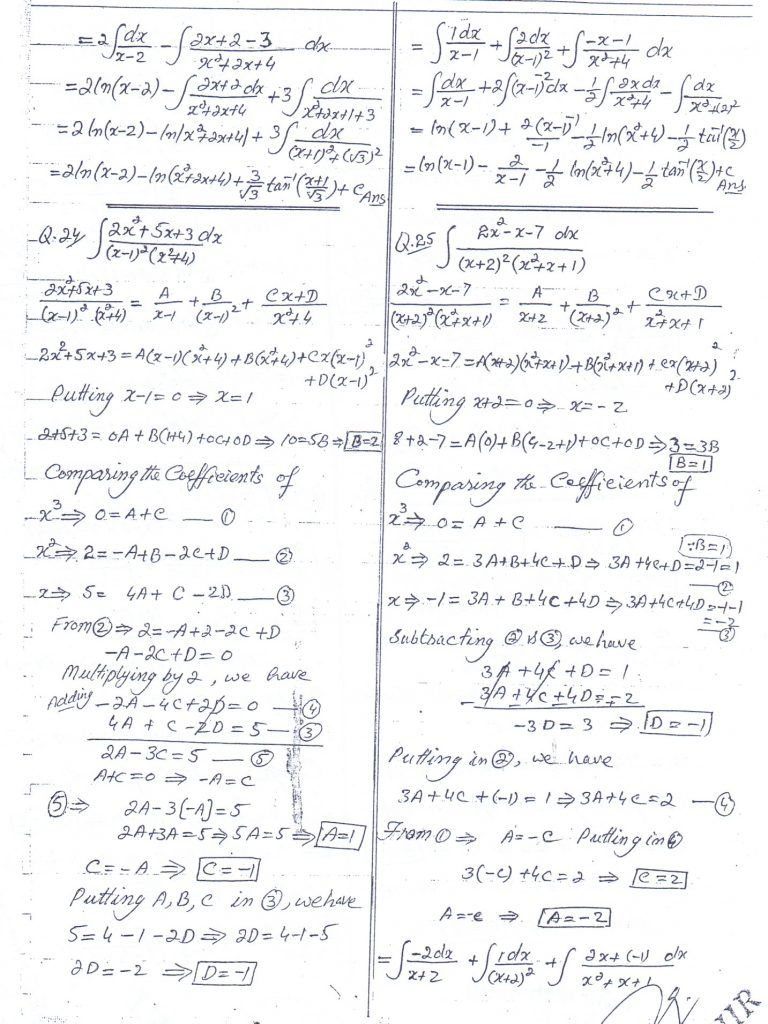 = 2∫dx/(x-2) - ∫(2x+2-3)/(x²+2x+4) dx
= 2ln(x-2) - ∫(2x+2 dx)/(x²+2x+4) + 3∫dx/(x²+2x+1+3)
= 2ln(x-2) - ln|x²+2x+4| + 3∫dx/((x+1)²+(√3)²)
= 2ln(x-2) - ln(x²+2x+4) + 3/√3 tan⁻¹((x+1)/√3) + C Ans
Q.24 ∫(2x²+5x+3 dx)/((x-1)²(x²+4))
(2x²+5x+3)/((x-1)²(x²+4)) = A/(x-1) + B/(x-1)² + (Cx+D)/(x²+4)
2x²+5x+3 = A(x-1)(x²+4) + B(x²+4) + Cx(x-1)²
+D(x-1)²
Putting x-1=0 ⇒ x=1
2+5+3 = 0A + B(1+4) + 0C + 0D ⇒ 10=5B ⇒ B=2
Comparing the Coefficients of
x³ ⇒ 0=A+C — ①
x² ⇒ 2=-A+B-2C+D — ②
x ⇒ 5= 4A + C -2D — ③
From ② ⇒ 2=-A+2-2C+D
-A-2C+D=0
Multiplying by 2, we have
Adding -2A-4C+2D=0 — ④
4A + C -2D=5 — ③
2A-3C=5 — ⑤
A+C=0 ⇒ -A=C
⑤ ⇒ 2A-3[-A]=5
2A+3A=5 ⇒ 5A=5 ⇒ A=1
C=-A ⇒ C=-1
Putting A,B,C in ③, we have
5=4-1-2D ⇒ 2D=4-1-5
2D=-2 ⇒ D=-1
= ∫1dx/(x-1) + ∫2dx/(x-1)² + ∫(-x-1)/(x²+4) dx
= ∫dx/(x-1) + 2∫(x-1)⁻²dx - 1/2∫2xdx/(x²+4) - ∫dx/(x²+(2)²
= ln(x-1) + 2(x-1)⁻¹/-1 - 1/2 ln(x²+4) - 1/2 tan⁻¹(x/2)
= ln(x-1) - 2/(x-1) - 1/2 ln(x²+4) - 1/2 tan⁻¹(x/2)+C
Ans
Q.25 ∫(2x²-x-7 dx)/((x+2)²(x²+x+1))
(2x²-x-7)/((x+2)²(x²+x+1)) = A/(x+2) + B/(x+2)² + (Cx+D)/(x²+x+1)
2x²-x-7 = A(x+2)(x²+x+1) + B(x²+x+1) + Cx(x+2)²
+D(x+2)²
Putting x+2=0 ⇒ x=-2
8+2-7=A(0)+B(4-2+1)+0C+0D ⇒ 3=3B
B=1
Comparing the Coefficients of
x³ ⇒ 0=A+C — ①
∵B=1
x² ⇒ 2=3A+B+4C+D ⇒ 3A+4C+D=2-1=1
— ②
x ⇒ -1=3A+B+4C+4D ⇒ 3A+4C+4D=-1-1
=-2
— ③
Subtracting ② & ③, we have
3A+4C+D=1
-3A+4C+4D=-2
-3D=3 ⇒ D=-1
Putting in ②, we have
3A+4C+(-1)=1 ⇒ 3A+4C=2 — ④
From ① ⇒ A=-C Putting in ④
3(-C)+4C=2 ⇒ C=2
A=-C ⇒ A=-2
= ∫-2dx/(x+2) + ∫1dx/(x+2)² + ∫(2x+(-1) dx)/(x²+x+1)